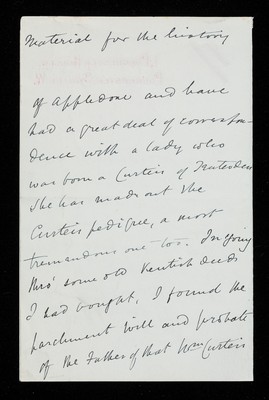 Material for the history
of Appledore and have
had a great deal of correspon-
dence with a lady who
was born a Curteis of Tenterden
She has made out the
Curteis pedigree, a most
tremendous one too. In going
thro' some old Kentish deeds
I had bought, I found the
parchment Will and probate
of the Father of that Wm Curteis